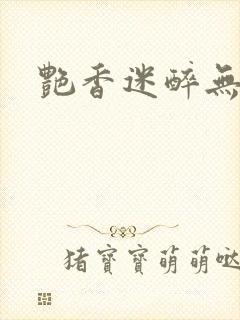 艷香迷醉無
猪寶寶萌萌哒